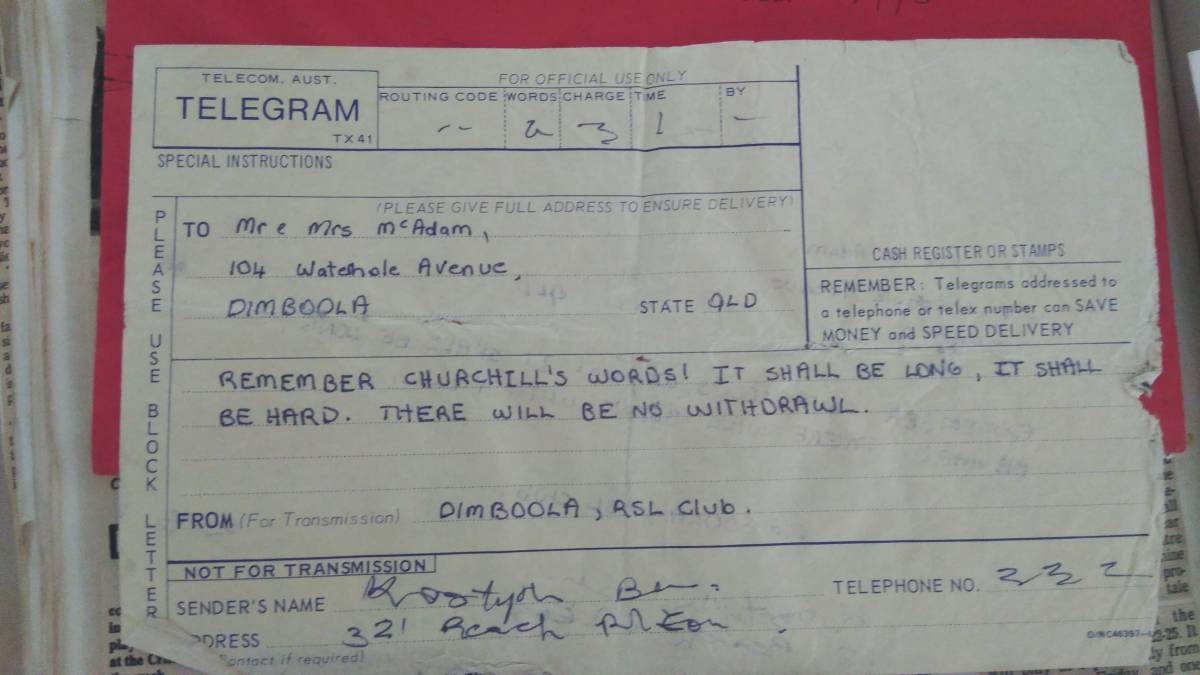 TELECOM. AUST.
TELEGRAM
TX 41
FOR OFFICIAL USE ONLY
ROUTING CODE WORDS CHARGE TIME BY
SPECIAL INSTRUCTIONS
(PLEASE GIVE FULL ADDRESS TO ENSURE DELIVERY)
PLEASE USE BLOCK LETTER
TO Mr e Mrs McAdam,
104 Watehole Avenue,
DIMBOOLA STATE QLD
CASH REGISTER OR STAMPS
REMEMBER: Telegrams addressed to
a telephone or telex number can SAVE
MONEY and SPEED DELIVERY
REMEMBER CHURCHILL'S WORDS! IT SHALL BE LONG, IT SHALL
BE HARD. THERE WILL BE NO WITHDRAWL.
FROM (For Transmission) DIMBOOLA, RSL Club.
NOT FOR TRANSMISSION
SENDER'S NAME
TELEPHONE NO.
DRESS 321 Beach
Contact if required)